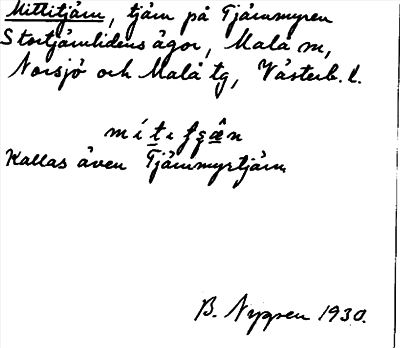 Mittitjärn, tjärn på Tjärnmyren
Stortjärnlidens ägor, Malå sn,
Norsjö och Malå tg, Västerb. l.
Kallas även Tjärnmyrtjärn
B. Nygren 1930.